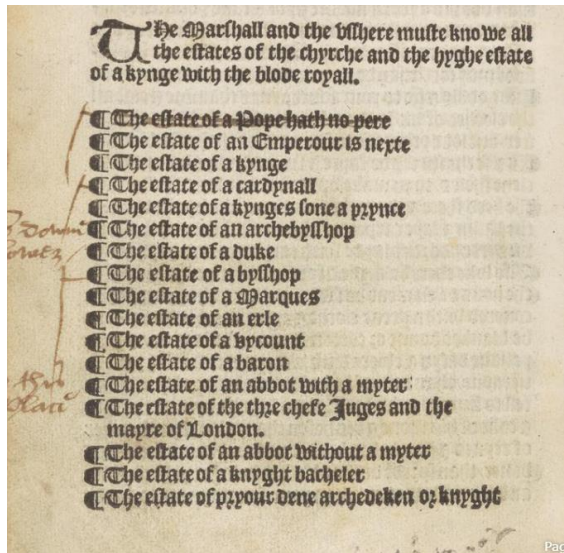 The Marshall and the vsshere muste knowe all
the estates of the chyrche and the hyghe estate
of a kynge with the blode royall.
¶ The estate of a Pope hath no pere
¶ The estate of an Emperour is nexte
¶ The estate of a kynge
¶ The estate of a cardynall
¶ The estate of a kynges sone a prynce
¶ The estate of an archebysshop
¶ The estate of a duke
¶ The estate of a bysshop
¶ The estate of a Marques
¶ The estate of an erle
¶ The estate of a vycount
¶ The estate of a baron
¶ The estate of an abbot with a myter
¶ The estate of the thre chefe Juges and the
mayre of London.
¶ The estate of an abbot without a myter
¶ The estate of a knyght bacheler
¶ The estate of pryour dene archedeken or knyght
this